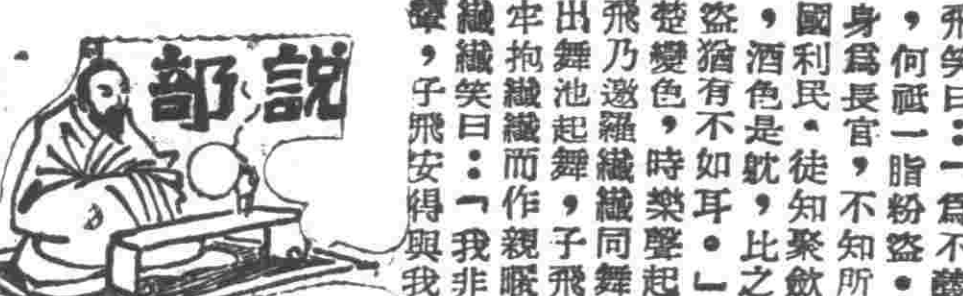 飛笑曰：「爲不
，何祗一脂粉盜。
身爲長官，不知所
國利民。徒知聚歛
，酒色是躭，比之
盜猶有不如耳。」
楚變色，時樂聲起
飛乃邀羅纖纖同舞
出舞池起舞，子飛
牢抱纖纖而作親暱
纖纖笑曰：「我非
，子飛安得與我
說部